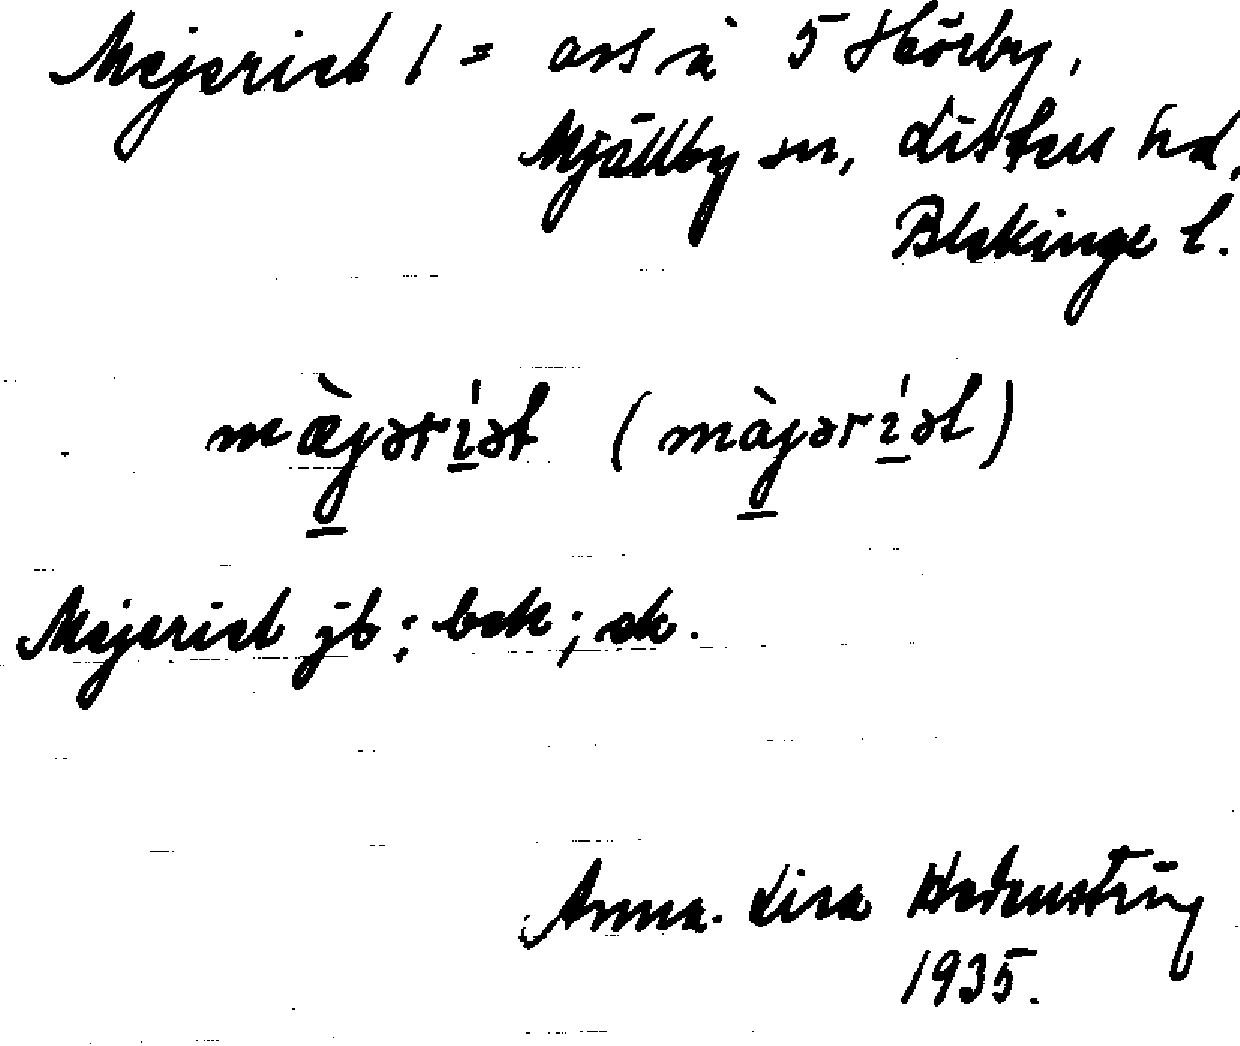 Mejeriet 1 = avs å 5 Hörby,
Mjällby sn, Listers hd,
Blekinge l.
mæ̀jəríət (màjəríət)
Mejeriet jb; bek; ek.
Anna-Lisa Hedenstierna
1935.